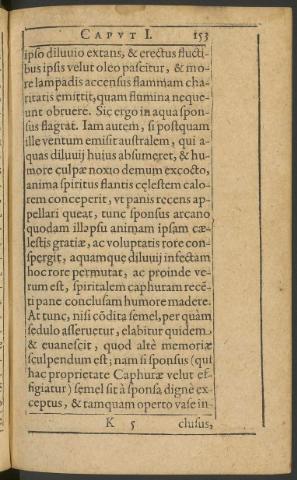 CAPVT I. 153
ipso diluuio extans, & erectus flucti-
bus ipsis velut oleo pascitur, & mo-
re lampadis accensus flammam cha-
ritatis emittit, quam flumina neque-
unt obruere. Sic ergo in aqua spon-
sus flagrat. Iam autem, si postquam
ille ventum emisit australem, qui a-
quas diluuij huius absumeret, & hu-
more culpæ noxio demum excocto,
anima spiritus flantis celestem calo-
rem conceperit, vt panis recens ap-
pellari queat, tunc sponsus arcano
quodam illapsu animam ipsam cæ-
lestis gratiæ, ac voluptatis rore con-
spergit, aquamque diluuij infectam
hoc rore permutat, ac proinde ve-
rum est, spiritalem caphuram recē-
ti pane conclusam humore madere.
At tunc, nisi cōdita semel, per quàm
sedulo asseruetur, elabitur quidem
& euanescit, quod altè memoriæ
sculpendum est; nam si sponsus (qui
hac proprietate Caphuræ velut ef-
figiatur) semel sit à sponsa dignè ex-
ceptus, & tamquam operto vase in-
K 5 clusus,